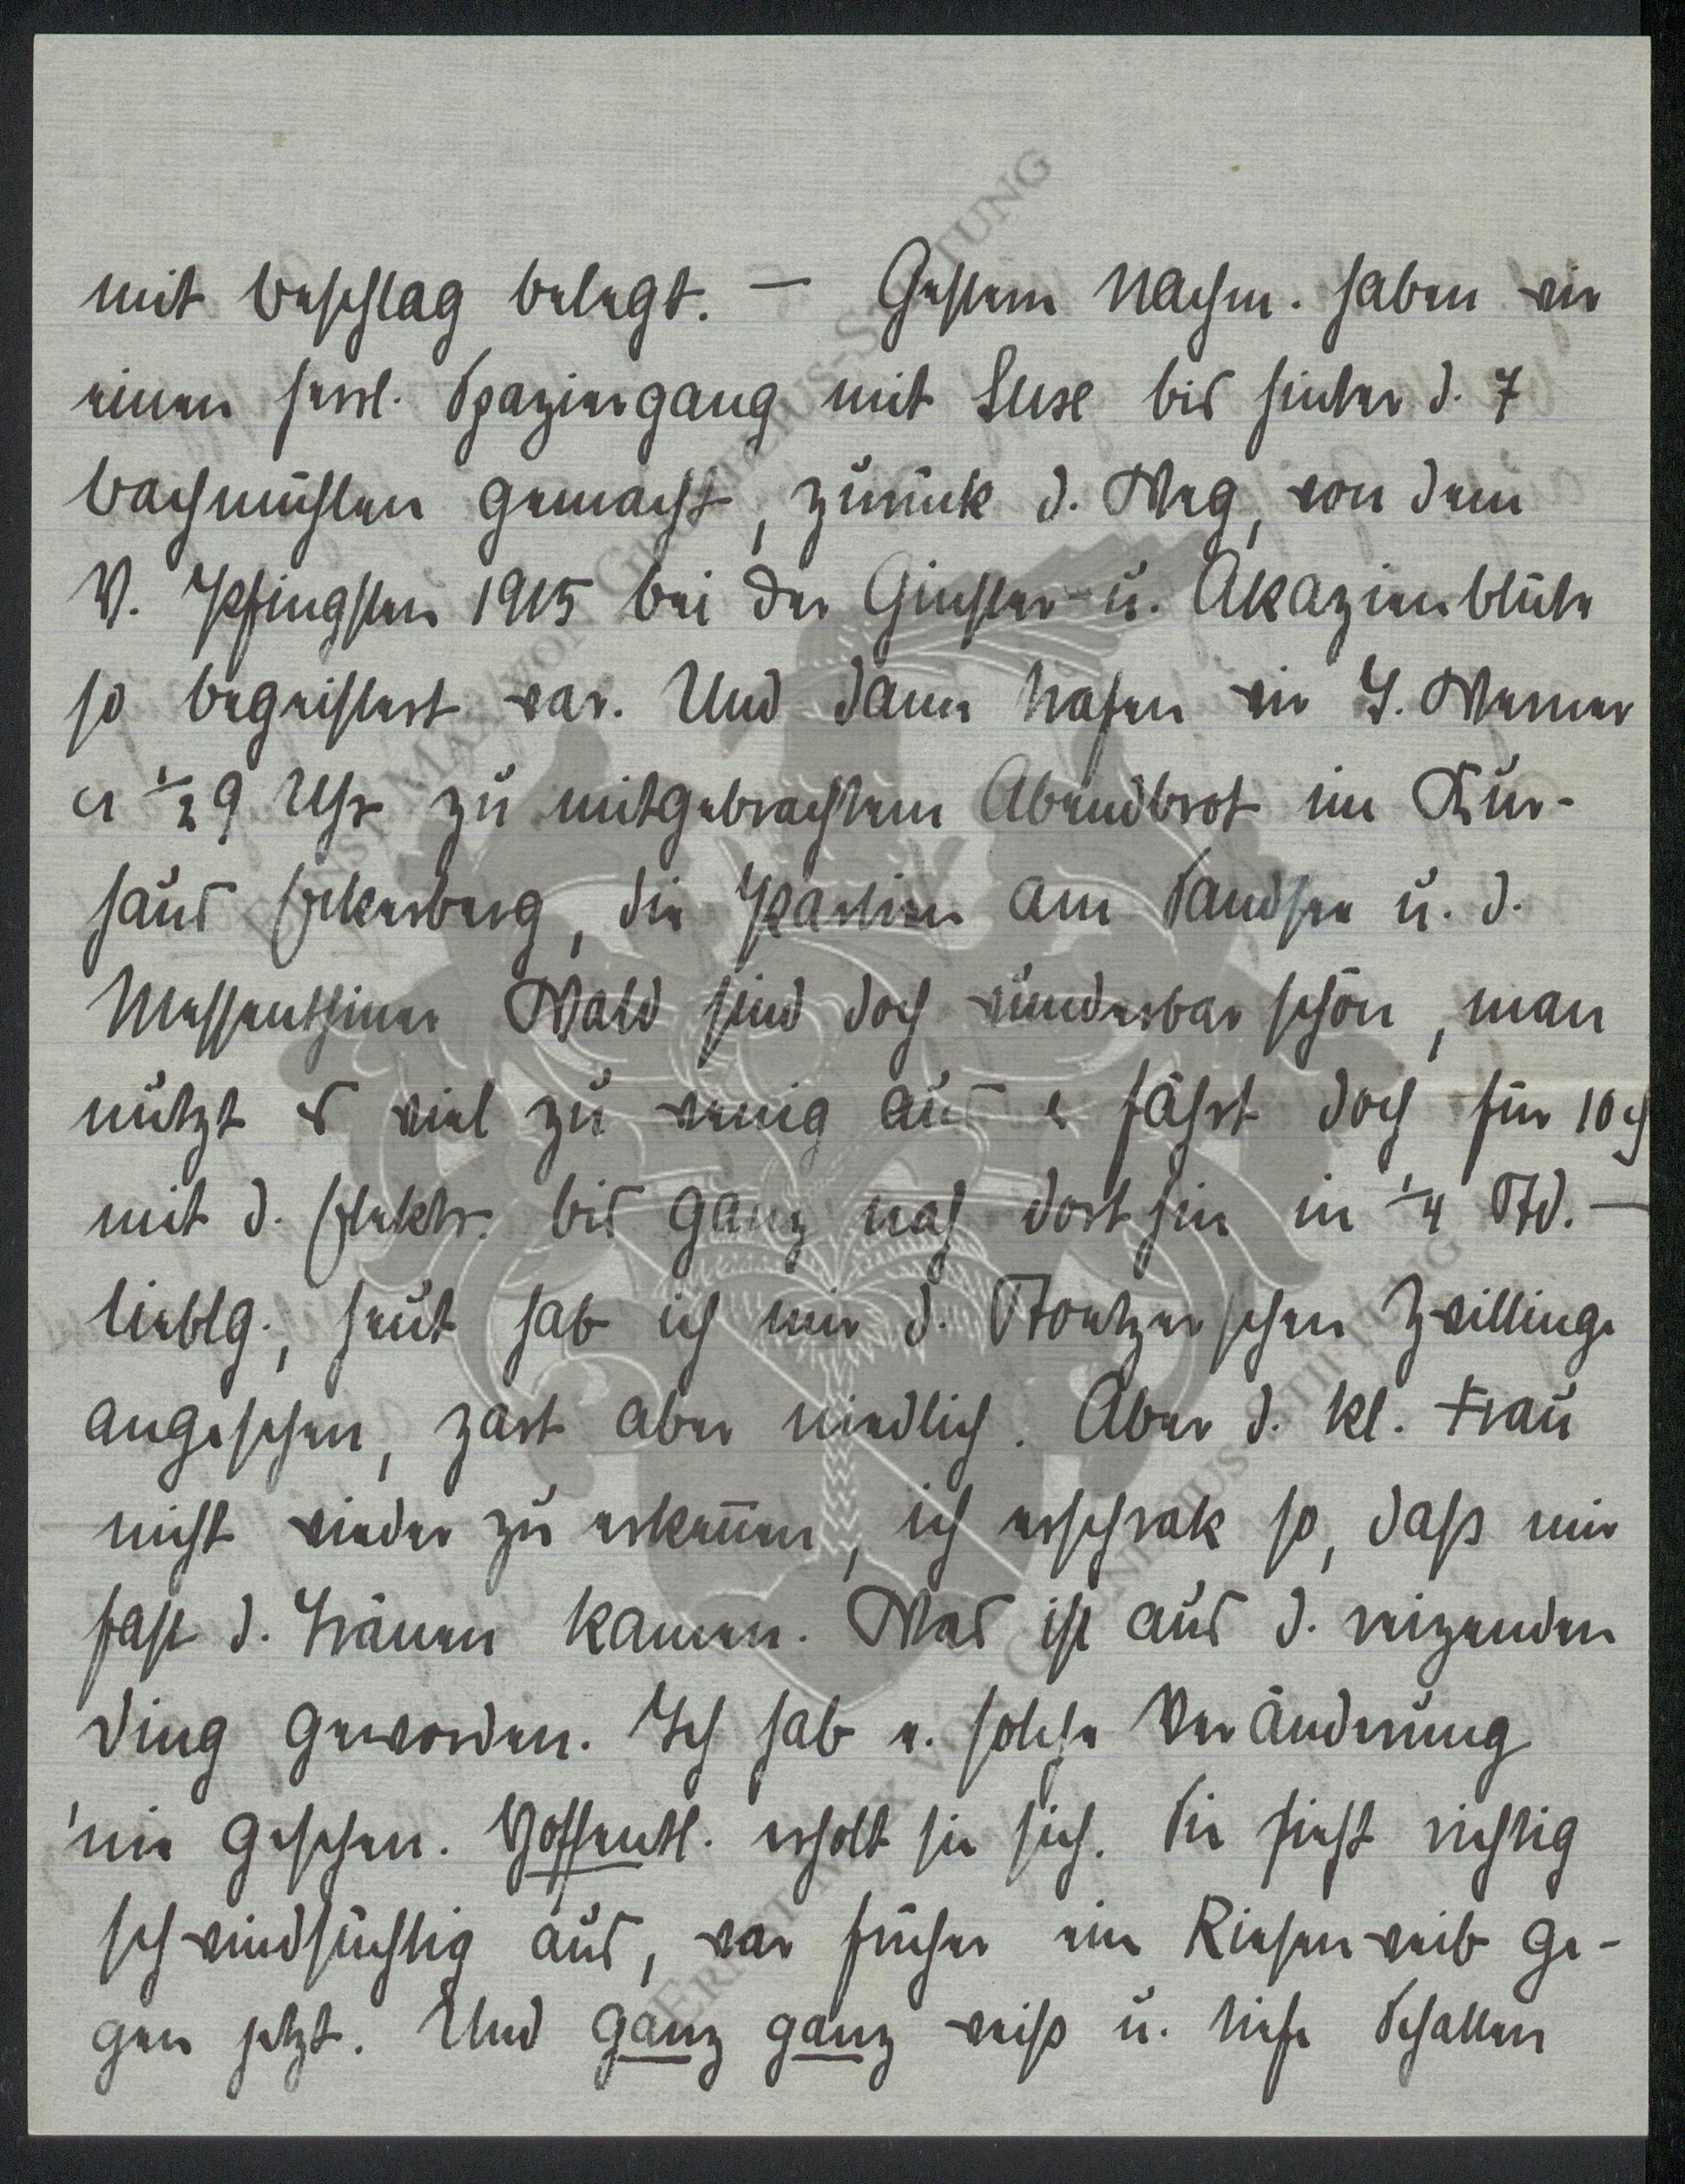 mit Beschlag belegt. — Gestern Nachm. haben wir
einen herrl. Spaziergang mit Suse bis hinter d. 7
Bachmühlen gemacht, zurück d. Weg, von dem
V. Pfingsten 1915 bei der Ginster- u. Akazienblüte
so begeistert war. Und dann trafen wir J. Werner
a ½ 9 Uhr zu mitgebrachtem Abendbrot im Kur-
haus Eckerberg, die Partien am Sandsee u. d.
Messenthiner Wald sind doch wunderbar schön, man
nützt es viel zu wenig aus u fährt doch für 10 ₰
mit d. Elektr. bis ganz nah dorthin in ¼ Std. —
Lieblg., heut hab ich mir d. Stoetzerschen Zwillinge
angesehen, zart aber niedlich. Aber d. kl. Frau
nicht wieder zu erkennen, ich erschrak so, dass mir
fast d. Tränen kamen. Was ist aus d. reizenden
Ding geworden. Ich hab e. solche Veränderung
nie gesehen. Hoffentl. erholt sie sich. Sie sieht richtig
schwindsüchtig aus, war früher ein Riesenweib ge-
gen jetzt. Und ganz ganz weiss u. tiefe Schatten
ERNST MAX VON GRUNELIUS-STIFTUNG
ERNST MAX VON GRUNELIUS-STIFTUNG